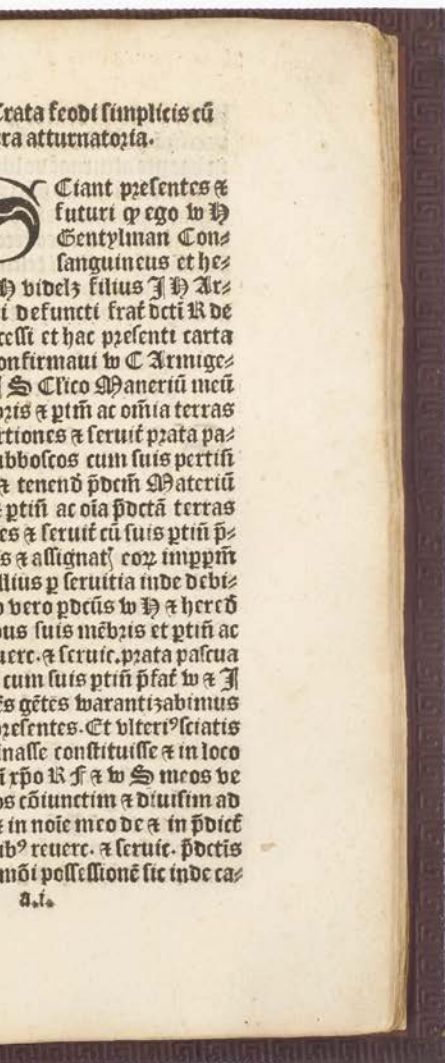 Crata feodi simplicis cū
ra atturnatoꝛia.
SCiant pꝛesentes ⁊
futuri ꝙ ego w H
Gentylman Con⸗
sanguineus et he⸗
H videlʒ filius J H Ar⸗
i defuncti frat̄ dcti R de
cessi et hac pꝛesenti carta
onfirmaui w C Armige⸗
S Cl̄ico Maneriū meū
bꝛis ⁊ ꝑtim̄ ac om̄ia terras
rtiones ⁊ seruit̄ pꝛata pa⸗
ubboscos cum suis pertiñ
⁊ tenend̄ p̄dcm̄ Materiū
ꝑtiñ ac oīa p̄dctā terras
es ⁊ seruit̄ cū suis ꝑtiñ p̄⸗
s ⁊ assignat̄ eoꝝ imppm̄
llius ꝑ seruitia inde debi⸗
o vero pdcūs w H ⁊ hered̄
bus suis mēbꝛis et ꝑtiñ ac
uerc. ⁊ seruic. pꝛata pascua
cum suis ꝑtiñ p̄fat̄ w ⁊ J
ēs gētes warantiʒabimus
pꝛesentes. Et vlteriꝰ sciatis
inasse constituisse ⁊ in loco
ī xp̄o R F ⁊ w S meos ve
os cōiunctim ⁊ diuisim ad
⁊ in noīe meo de ⁊ in p̄dict̄
ubꝰ reuerc. ⁊ seruic. p̄dctis
mōi possessionē sic inde ca⸗
a.i.